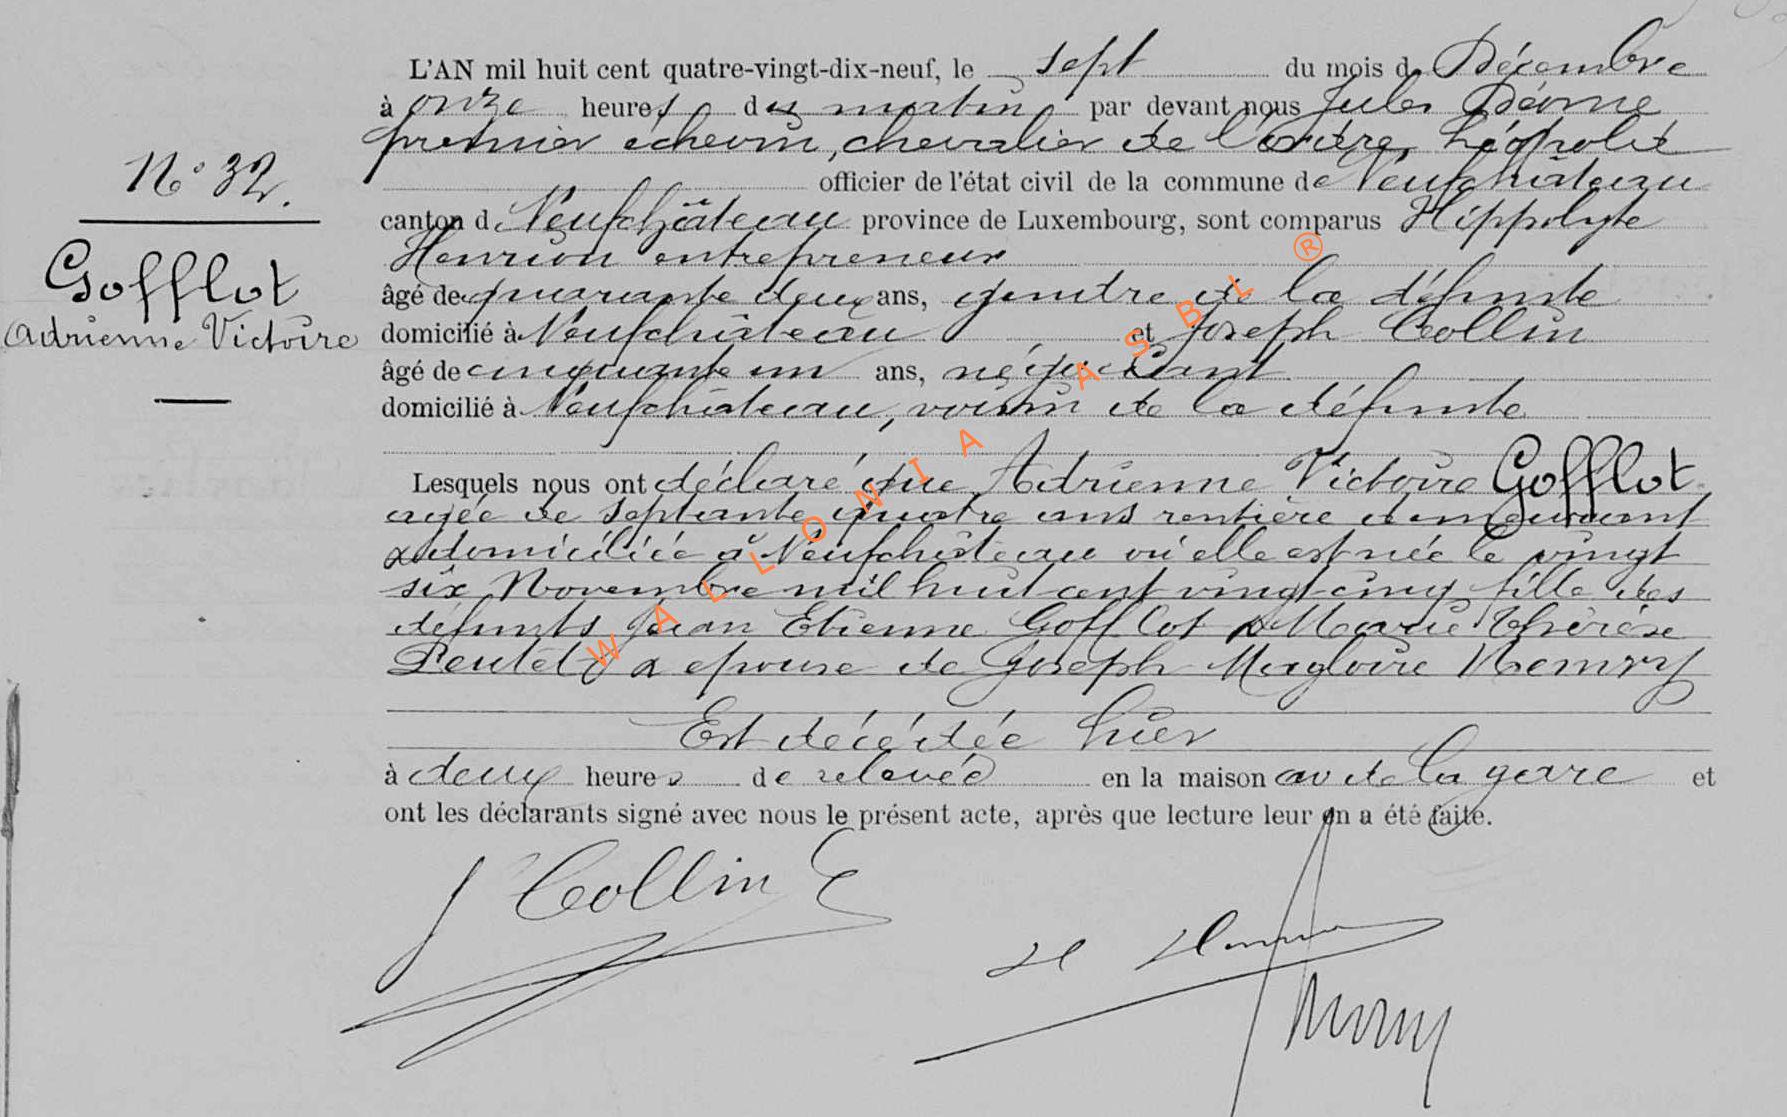 L'AN mil huit cent quatre-vingt-dix-neuf, le sept du mois de Décembre
à onze heures du matin par devant nous Jules
premier échevin, chevalier de l'ordre Léopold
N° 32.
officier de l'état civil de la commune de Neufchâteau
canton de Neufchâteau province de Luxembourg, sont comparus Hippolyte
Gofflot
Adrienne Victoire
Henrion entrepreneur
âgé de quarante deux ans, gendre de la défunte
domicilié à Neufchâteau et Joseph Collin
âgé de cinquante un ans, négociant
domicilié à Neufchâteau, voisin de la défunte
Lesquels nous ont déclaré que Adrienne Victoire Gofflot
agée de septante quatre ans rentière demeurant
& domiciliée à Neufchâteau où elle est née le vingt
six Novembre mil huit cent vingt cinq fille des
défunts Jean Etienne Gofflot & Marie Thérèse
& epouse de Joseph Magloire
Est décédée hier
à deux heures de relevée en la maison av de la gare et
ont les déclarants signé avec nous le présent acte, après que lecture leur en a été faite.
J Collin
H
WALLONIA ASBL ®